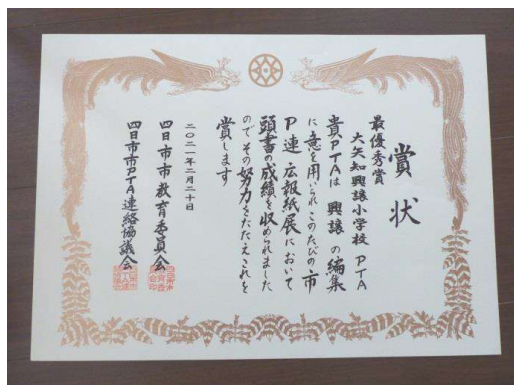 賞状
最優秀賞
大矢知興譲小学校 PTA
貴PTAは 興譲 の編集
に意を用いられ このたびの 市
P連 広報紙展 において
頭書の成績を収められました
ので その努力をたたえこれを
賞します
二〇二一年二月二十日
四日市市教育委員会
四日市市PTA連絡協議会